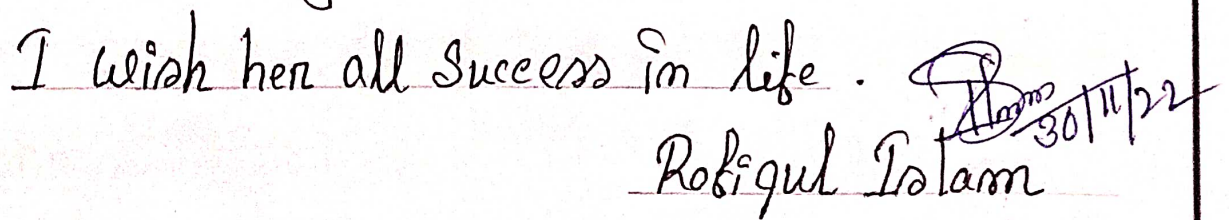 I wish her all success in life.
30/11/22
Rofiqul Islam